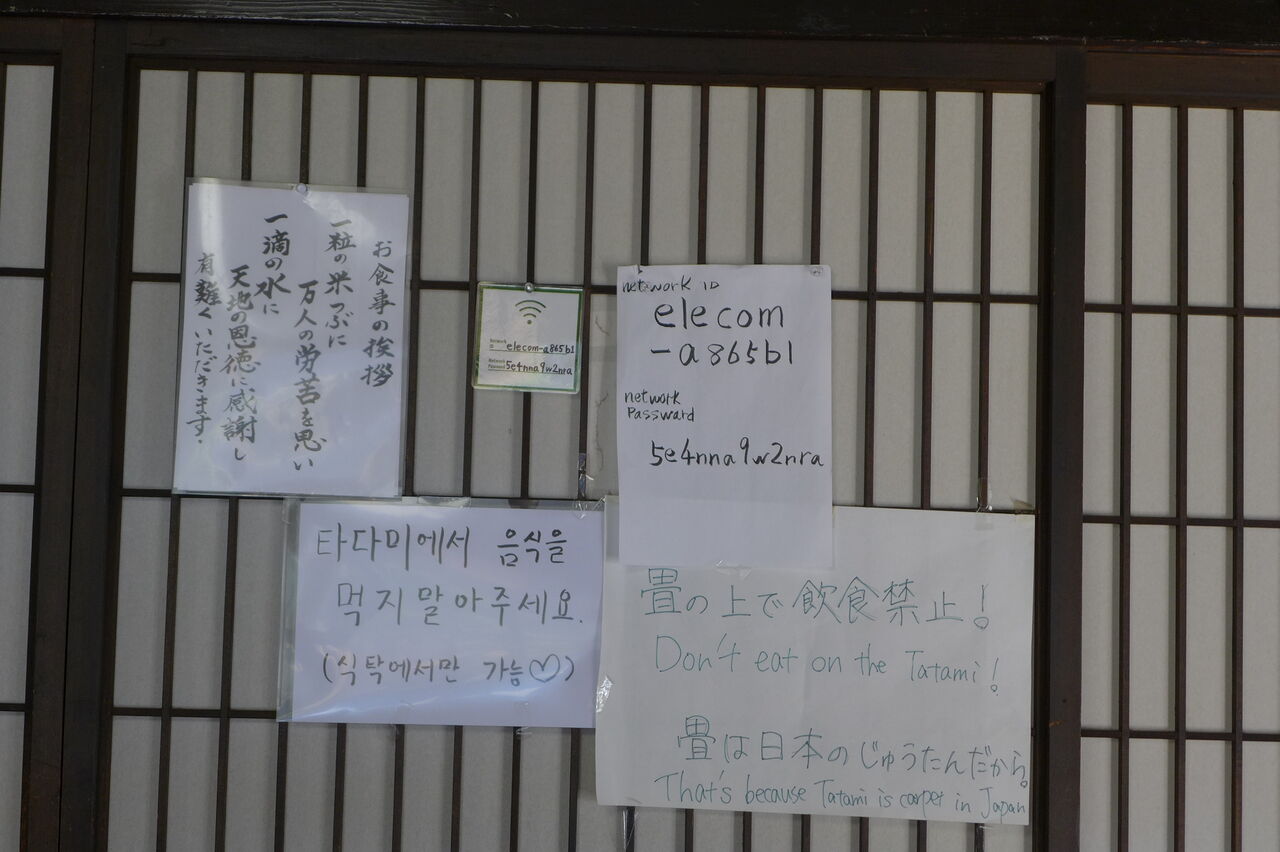 お食事の挨拶
一粒の米つぶに
万人の労苦を思い
一滴の水に
天地の恩徳に感謝し
有難くいただきます.
Network ID elecom-a865b1
Network Password 5e4nna9w2nra
network ID
elecom
-a865b1
network
Passward
5e4nna9w2nra
타다미에서 음식을
먹지말아주세요.
(식탁에서만 가능♡)
畳の上で飲食禁止!
Don't eat on the Tatami!
畳は日本のじゅうたんだから。
That's because Tatami is carpet in Japan